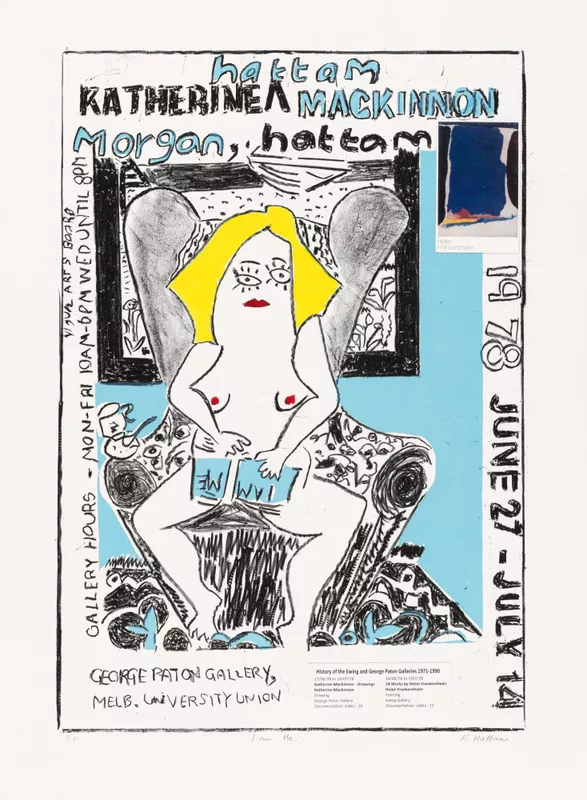 hattam
KATHERINE Λ MACKINNON
Morgan, hattam
VISUAL ARTS BOARD
GALLERY HOURS - MON-FRI 10AM-6PM WED UNTIL 8PM
Helen
Frankenthaler
1978 JUNE 27 - JULY 14
I AM
ME
GEORGE PATON GALLERY,
MELB. UNIVERSITY UNION
History of the Ewing and George Paton Galleries 1971-1990
Katherine Mackinnon - Drawings
Katherine Mackinnon
Drawing
George Paton Gallery
Documentation: slides - 10
Helen Frankenthaler
Painting
Ewing Gallery
Documentation: slides - 11
I am Me
K Hattam